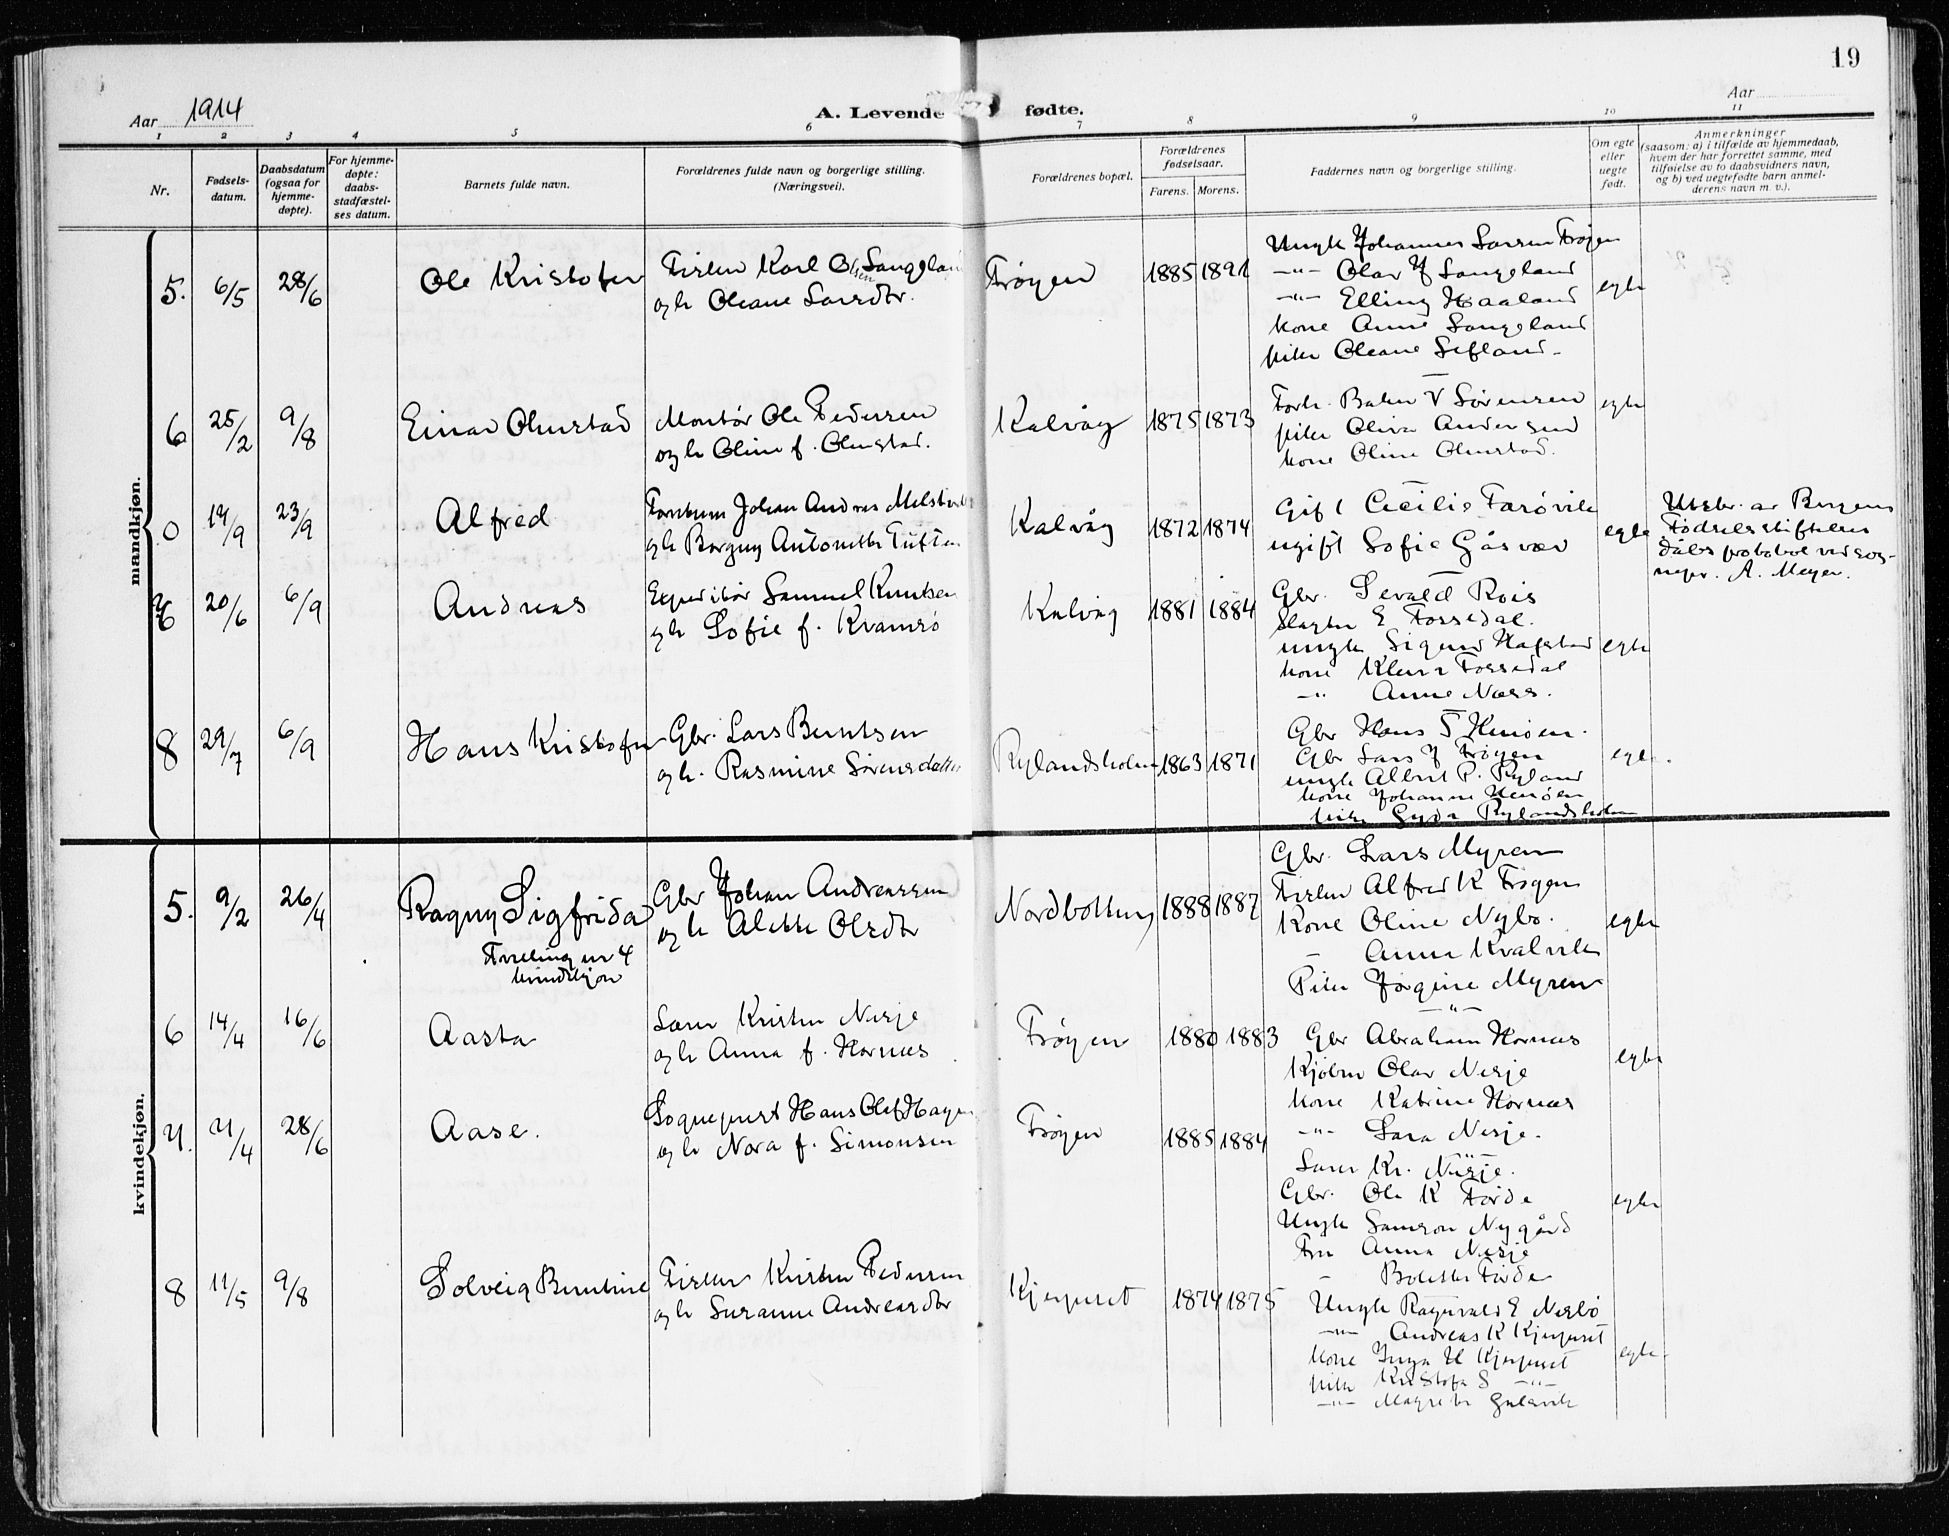 19
Aar 1914
A. Levende fødte.
Aar
1 2 3 4 5 6 7 8 9 10 11
Nr.
Fødsels-
datum.
Daabsdatum
(ogsaa for
hjemme-
døpte).
For hjemme-
døpte:
daabs-
stadfæstel-
ses datum.
Barnets fulde navn.
Forældrenes fulde navn og borgerlige stilling.
(Næringsvei).
Forældrenes bopæl.
Forældrenes
fødselsaar.
Farens. Morens.
Faddernes navn og borgerlige stilling.
Om egte
eller
uegte
født.
Anmerkninger
(saasom: a) i tilfælde av hjemmedaab,
hvem der har forrettet samme, med
tilføielse av to daabsvidners navn,
og b) ved uegtefødte barn anmel-
derens navn m. v.).
mandkjøn.
5. 6/5 28/6 Ole Kristofer
Fisker Karl Olsen Langeland
og h Oleane Larsdtr.
Frøyen 1885 1891
Ungk Johannes Larsen Frøyen
-"- Olav J Langeland
-"- Elling Haaland
kone Anne Langeland
pike Oleane Sefland
egte
6 25/2 9/8 Einar Olmstad
Montør Ole Pedersen
og h Oline f. Olmstad.
Kalvåg 1875 1873
Forh. Balser V Sørensen
pike Oliva Andersen
kone Oline Olmstad.
egte
0 14/9 23/9 Alfred
Johan Andreas
og h Borgny Antonette Tuften
Kalvåg 1872 1874
Gift Cecilie Farøvik
ugift Sofie Gåsvær
egte
Utskr. av Bergens
Fødselsstiftelses
dåbsprotokol ved sog-
nepr. A. Meyer.
7 20/6 6/9 Andreas
Expeditør Samuel Knutsen
og h Sofie f. Kvamsø
Kalvåg 1881 1884
Gbr. Sevald Rois
E Fossedal.
ungk Sigurd Hafstad
kone Klara Fossedal
-"- Anne Næss.
egte
8 29/7 6/9 Hans Kristofer
Gbr. Lars Berntsen
og h. Rasmine Sørensdatter
Rylandsholm 1863 1871
Gbr Hans T Henøen.
Gbr Lars J Frøyen
ungk Albert P. Ryland
kone Johanne Henøen
pike Gyda Rylandsholm
egte.
kvindekjøn.
5. 9/2 26/4 Ragny Sigfrida
Tvilling nr 4
kvindekjøn
Gbr Johan Andreassen
og h Alette Olsdtr
Nordbotten 1888 1887
Gbr. Lars Myren
Fisker Alfred K Frøyen
Kone Oline Nybø.
- Anna Kvalvik
Pike Jørgine Myren
-"-
egte
6 14/4 16/6 Aasta
Lærer Kristen Nesje
og h Anna f. Hornæs
Frøyen 1880 1883
Gbr Abraham Hornæs
Kjøbm Olav Nesje
kone Katrine Hornæs
-"- Lara Nesje.
egte
7. 21/4 28/6 Aase.
Sogneprest Hans Olaf Hagen
og h Nora f. Simonsen
Frøyen 1885 1884
Lærer Kr. Nesje.
Gbr. Ole K Førde
Ungk Samson Nygård
Fru Anna Nesje
- Bolette Førde
egte
8 11/5 9/8 Solveig Berntine
Fisker Kristen Pedersen
og h Susanne Andreasdtr
Kjempeset 1874 1875
Ungk Ragnvald E Nesbø
-"- Andreas K Kjempeset
kone Inga H Kjempeset
pike Kristofa S -"-
-"- Magrete Gulevik
egte.